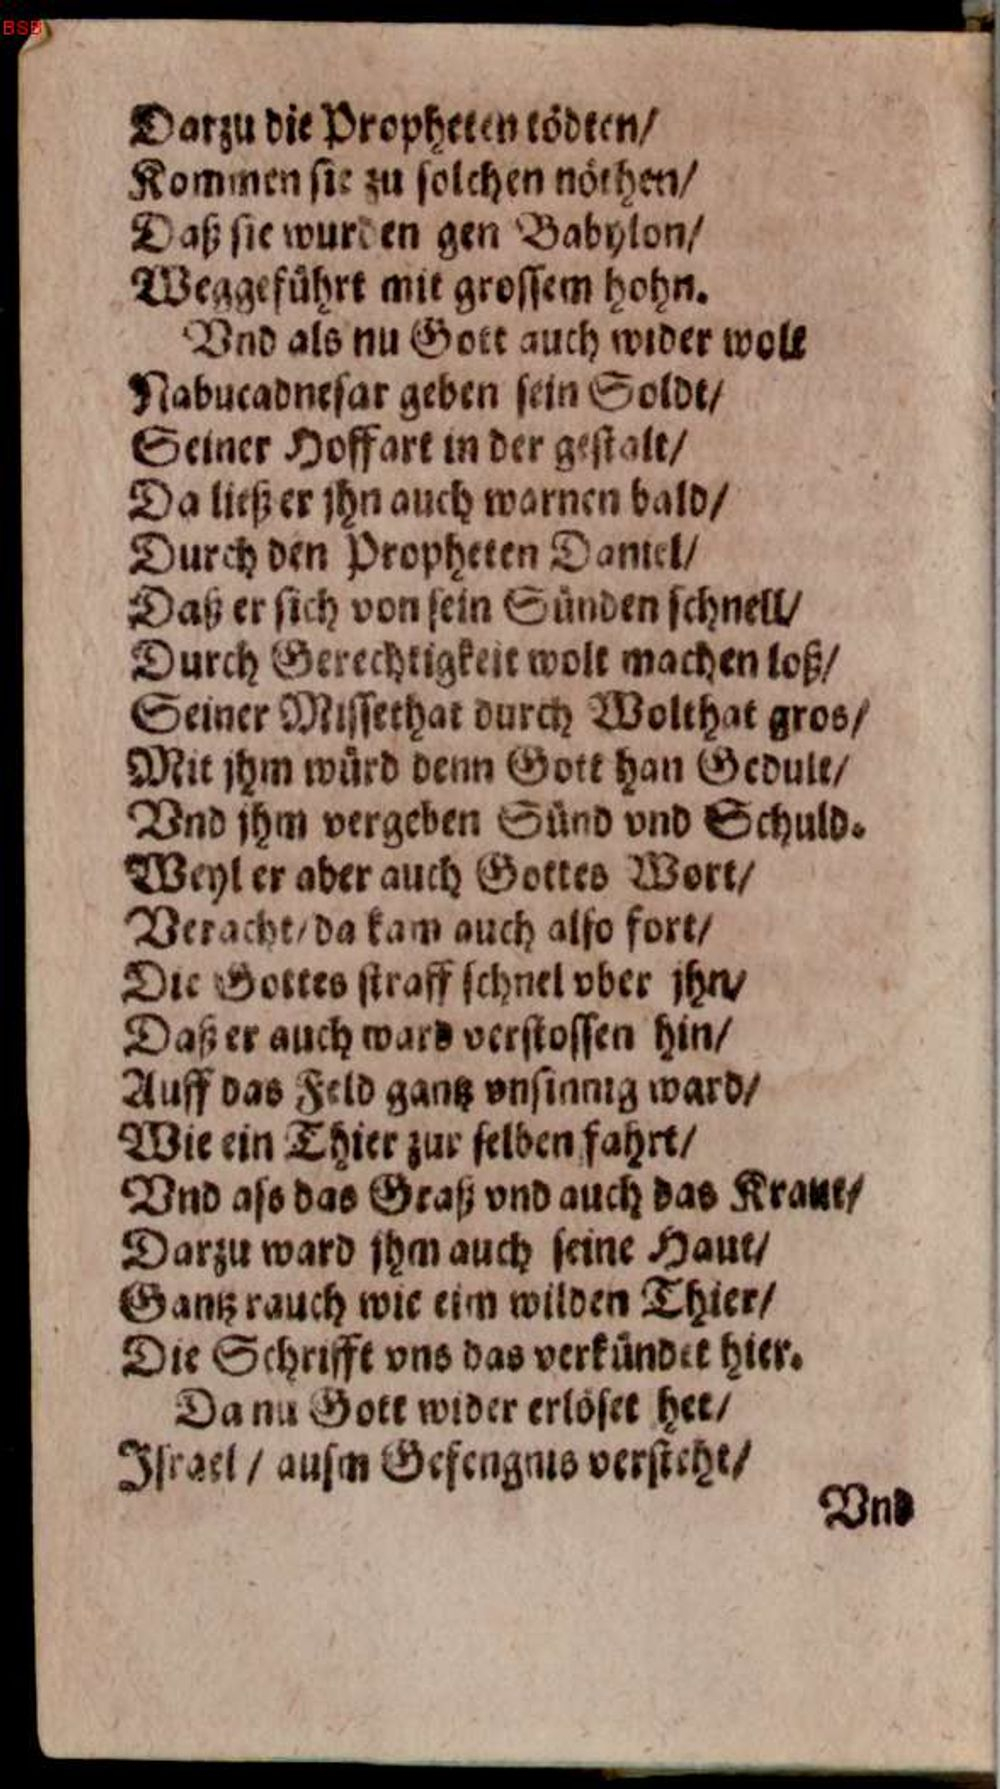 BSB
Darzu die Propheten tödten/
Kommen sie zu solchen nöthen/
Daß sie wurden gen Babylon/
Weggeführt mit grossem hohn.
Vnd als nu Gott auch wider wolt
Nabucadnesar geben sein Soldt/
Seiner Hoffart in der gestalt/
Da ließ er jhn auch warnen bald/
Durch den Propheten Daniel/
Daß er sich von sein Sünden schnell/
Durch Gerechtigkeit wolt machen loß/
Seiner Missethat durch Wolthat gros/
Mit jhm würd denn Gott han Gedult/
Vnd jhm vergeben Sünd vnd Schuld.
Weyl er aber auch Gottes Wort/
Veracht/ da kam auch also fort/
Die Gottes straff schnel vber jhn/
Daß er auch ward verstossen hin/
Auff das Feld gantz vnsinnig ward/
Wie ein Thier zur selben fahrt/
Vnd ass das Graß vnd auch das Kraut/
Darzu ward jhm auch seine Haut/
Gantz rauch wie eim wilden Thier/
Die Schrifft vns das verkündet hier.
Da nu Gott wider erlöset het/
Israel / ausm Gefengnis versteht/
Vnd